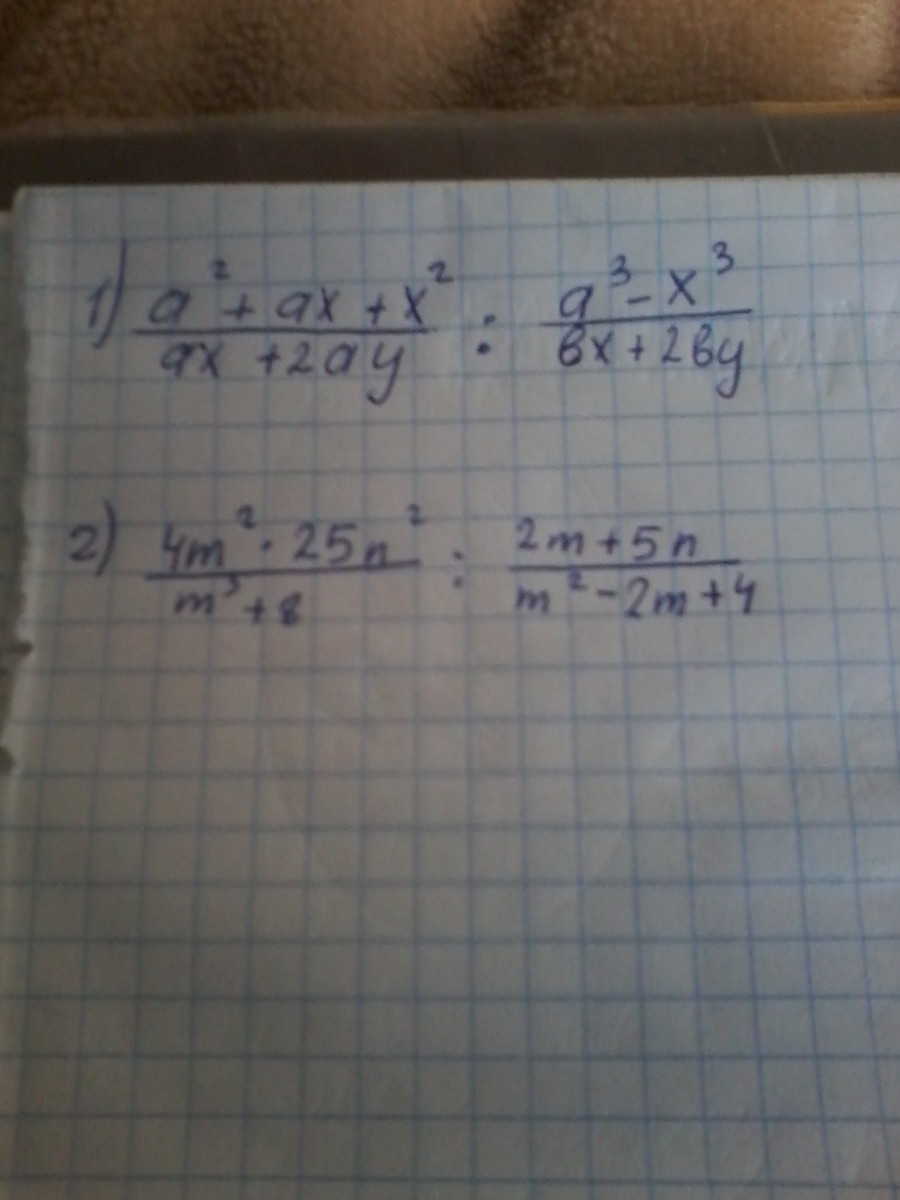 1) a² + ax + x² / ax + 2ay : a³ - x³ / bx + 2by
2) 4m² · 25n² / m³ + 8 : 2m + 5n / m² - 2m + 4